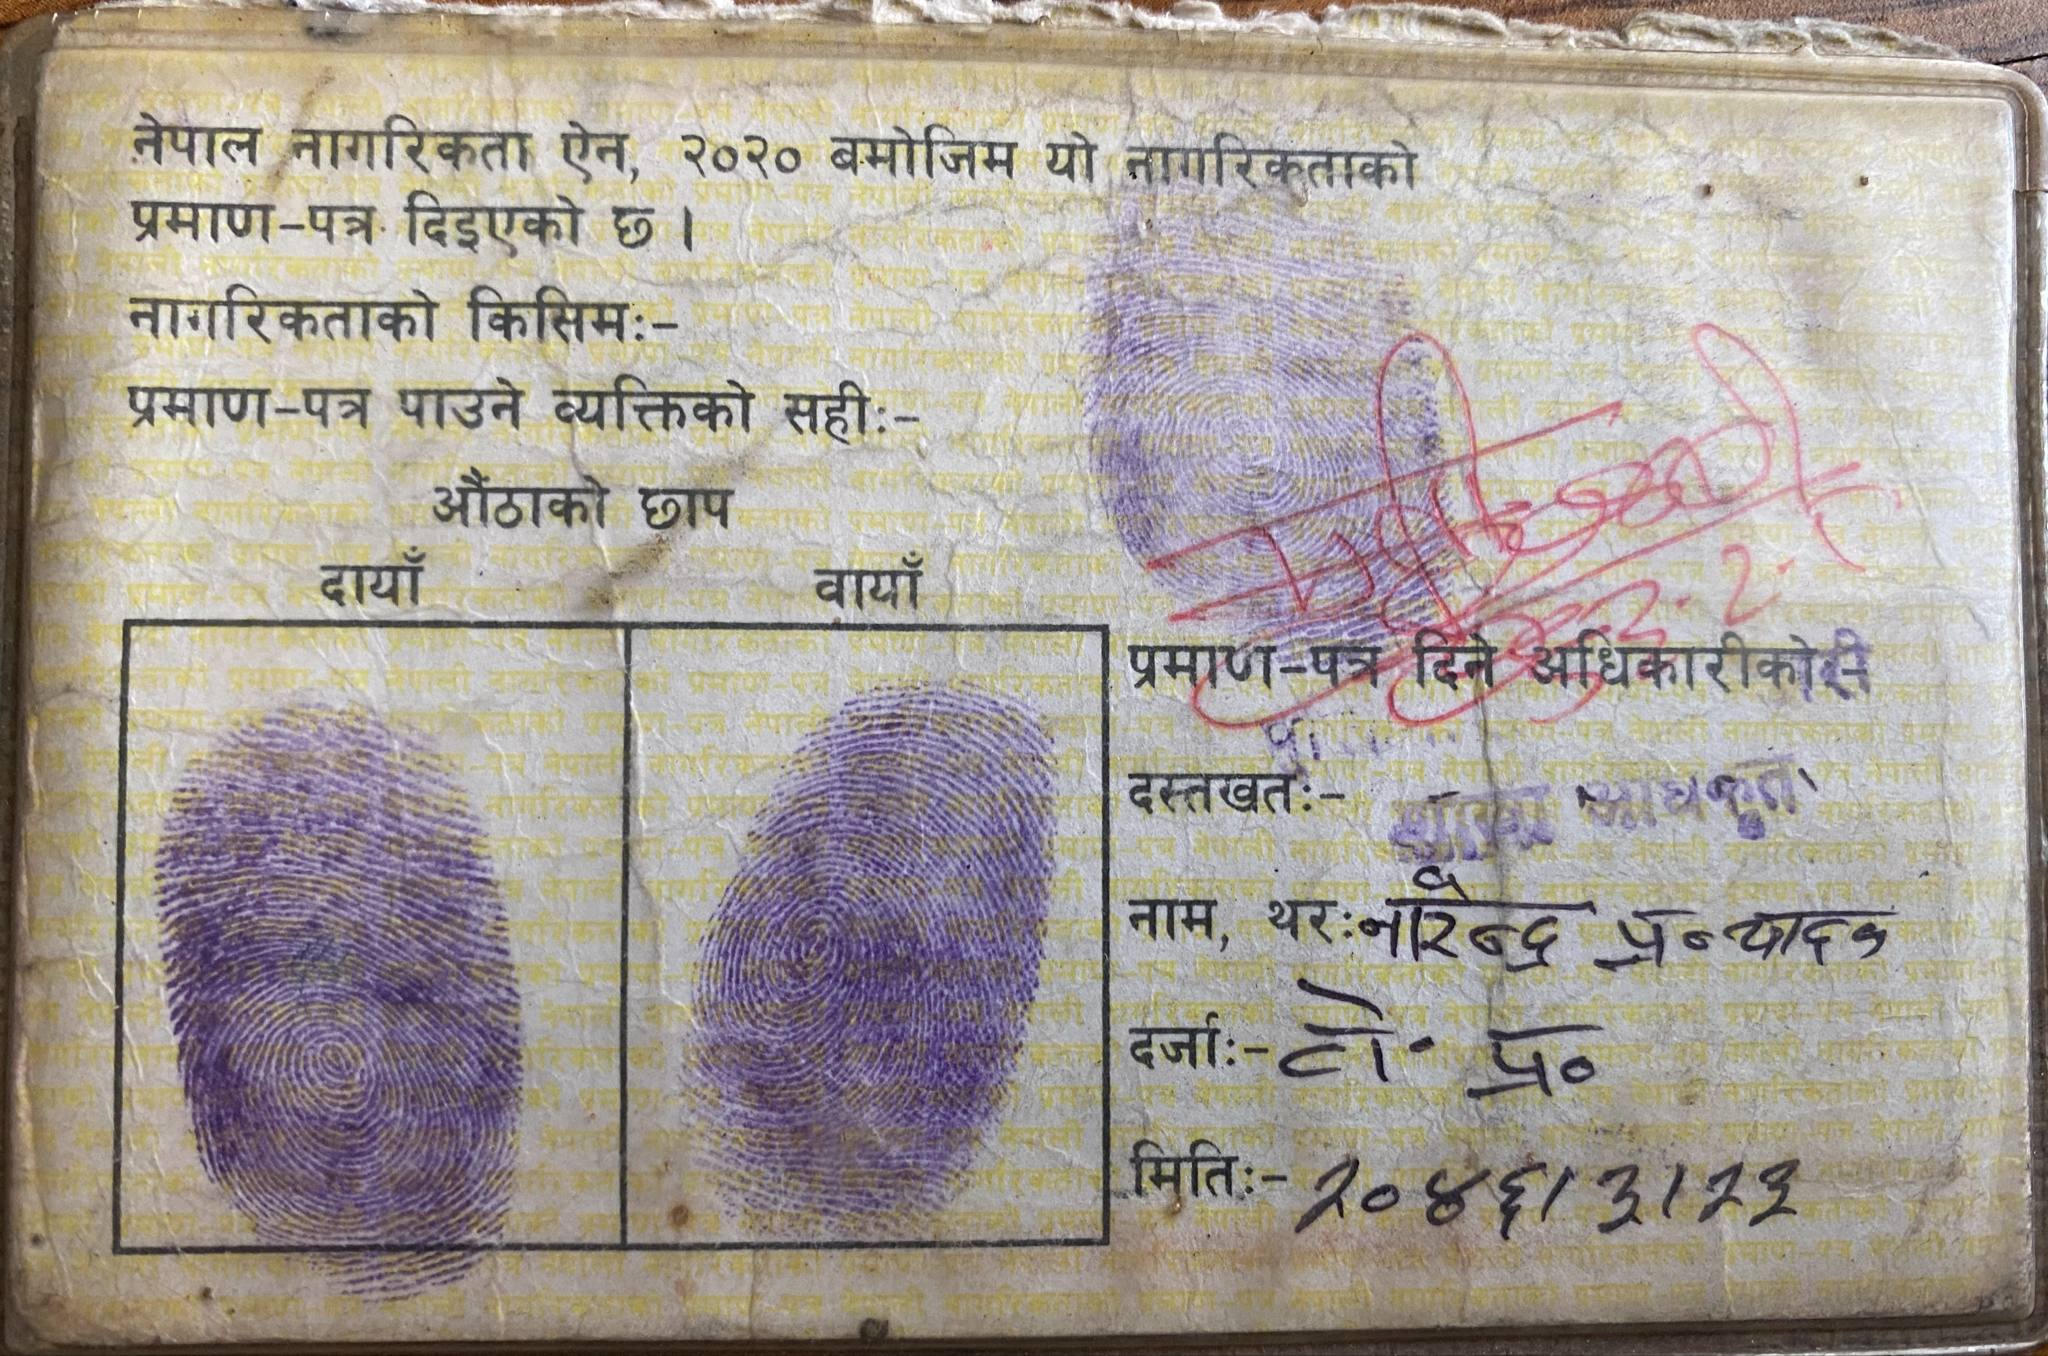 नेपाल नागरिकता ऐन, २०२० बमोजिम यो नागरिकताको
प्रमाण-पत्र दिइएको छ ।
नागरिकताको किसिम:-
प्रमाण-पत्र पाउने व्यक्तिको सही:-
औंठाको छाप
दायाँ वायाँ
प्रमाण-पत्र दिने अधिकारीको:-
दस्तखत:-
नाम, थर: नरेन्द्र प्र० यादव
दर्जा:- प्र०
मिति:- २०४६।३।२३